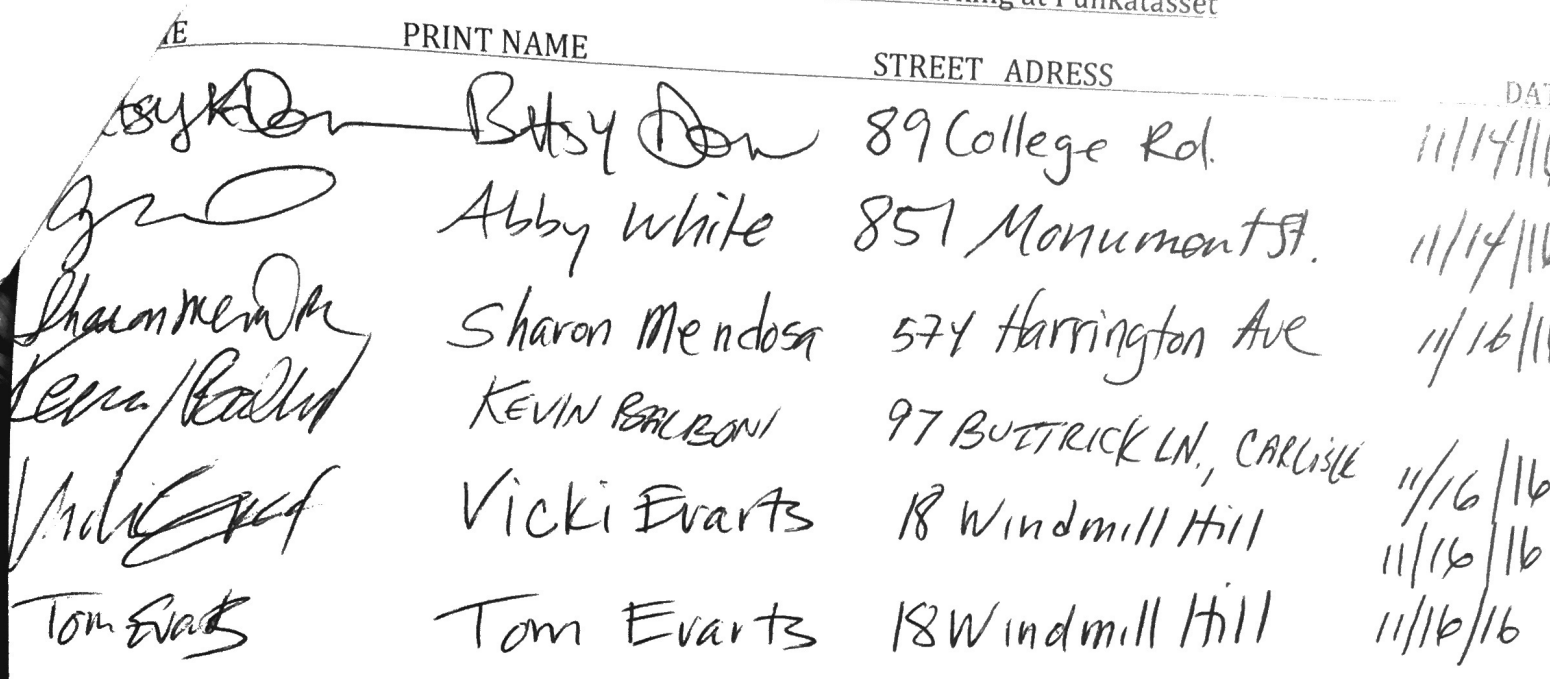 at Punkatasset
PRINT NAME STREET ADRESS
Betsy 89 College Rd. 11/14/1
Abby White 851 Monument St. 11/14/1
Sharon Mendosa Sharon Mendosa 574 Harrington Ave 11/16/1
KEVIN 97 BUTTRICK LN., CARLISLE 11/16/16
Vicki Evarts 18 Windmill Hill 11/16/16
Tom Evarts Tom Evarts 18 Windmill Hill 11/16/16